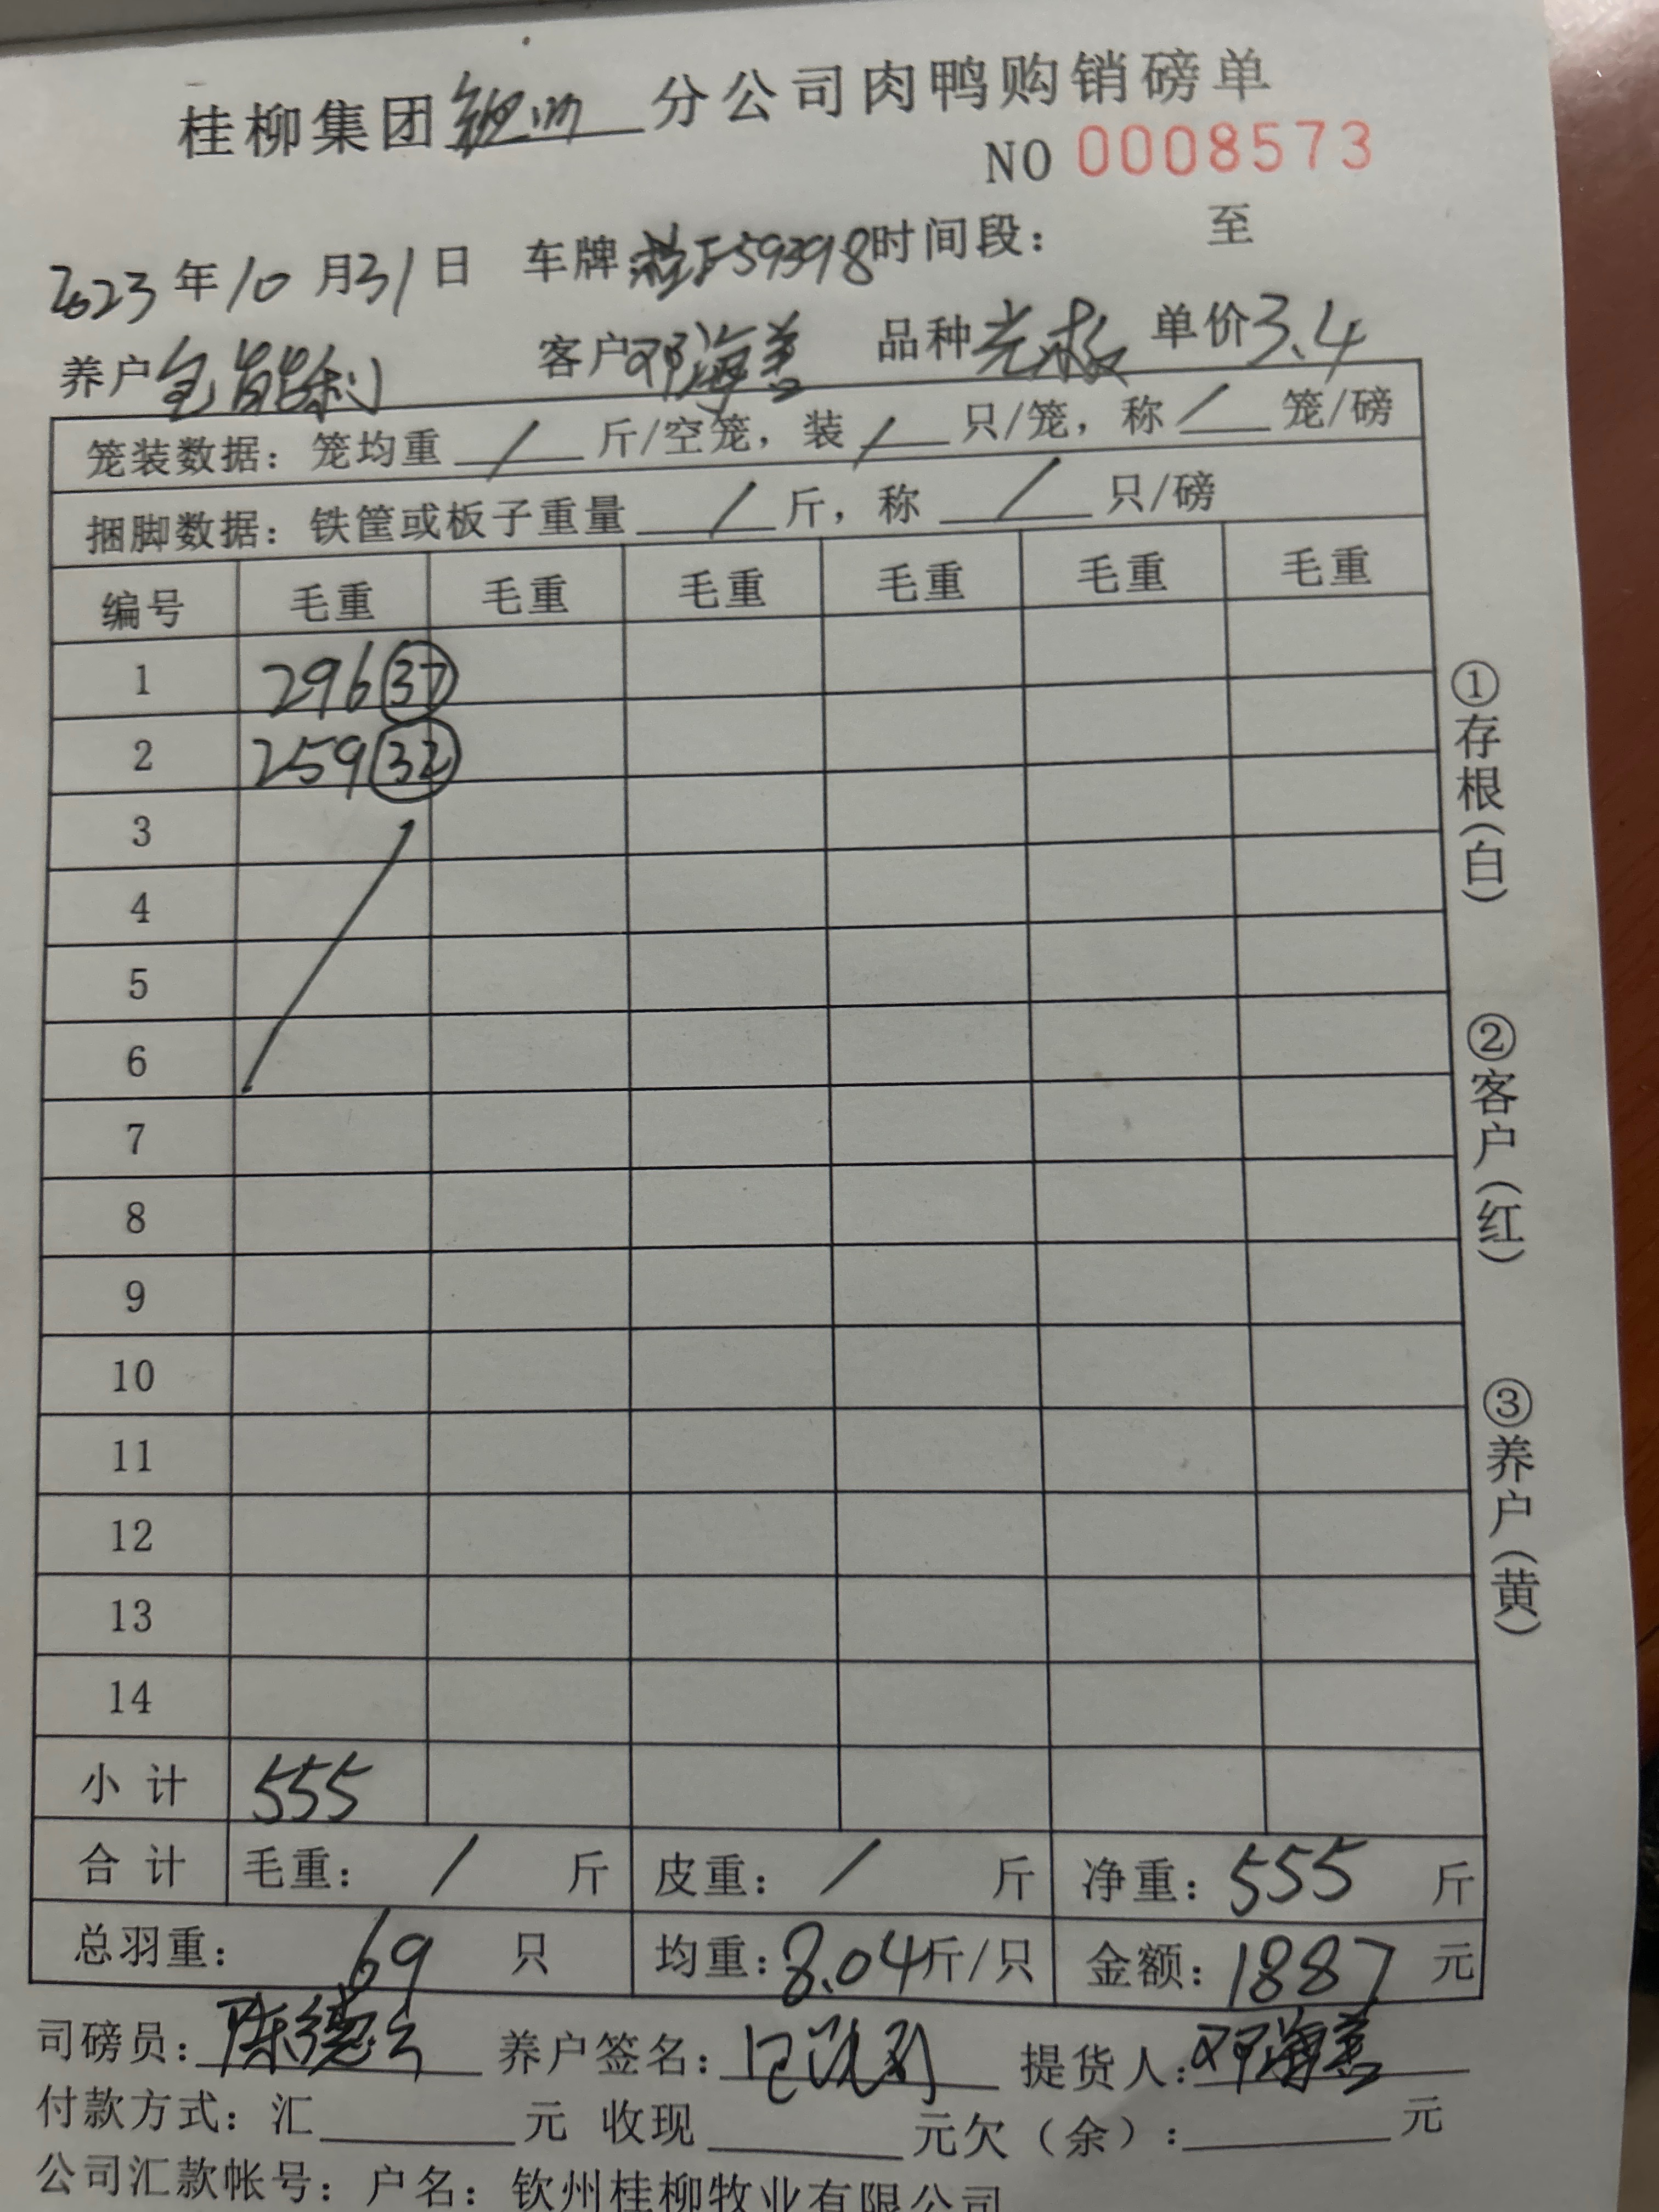 桂柳集团钦州分公司肉鸭购销磅单
NO 0008573
2023年10月31日 车牌:桂F59398时间段: 至
养户包能利 客户邓海善 品种 单价3.4
笼装数据:笼均重 / 斤/空笼,装 / 只/笼,称 / 笼/磅
捆脚数据:铁筐或板子重量 / 斤,称 / 只/磅
编号 毛重 毛重 毛重 毛重 毛重 毛重
1 296 37
2 259 32
3
4
5
6
7
8
9
10
11
12
13
14
小计 555
合计 毛重: / 斤 皮重: / 斤 净重:555 斤
总羽重: 69 只 均重:8.04斤/只 金额:1887元
司磅员:陈德 养户签名: 提货人:邓海善
付款方式:汇 元 收现 元欠(余): 元
公司汇款帐号:户名:钦州桂柳牧业有限公司
①存根(白)
②客户(红)
③养户(黄)